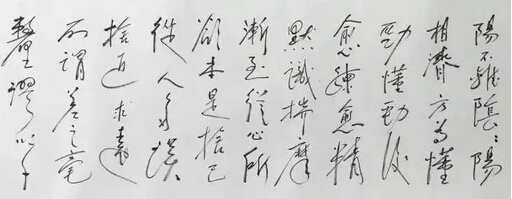 陽不離陰〻陽
相濟方為懂
勁懂勁後
愈練愈精
默識揣摩
漸至從心所
欲本是捨己
從人多誤
捨近求遠
所謂差之毫
釐謬以千